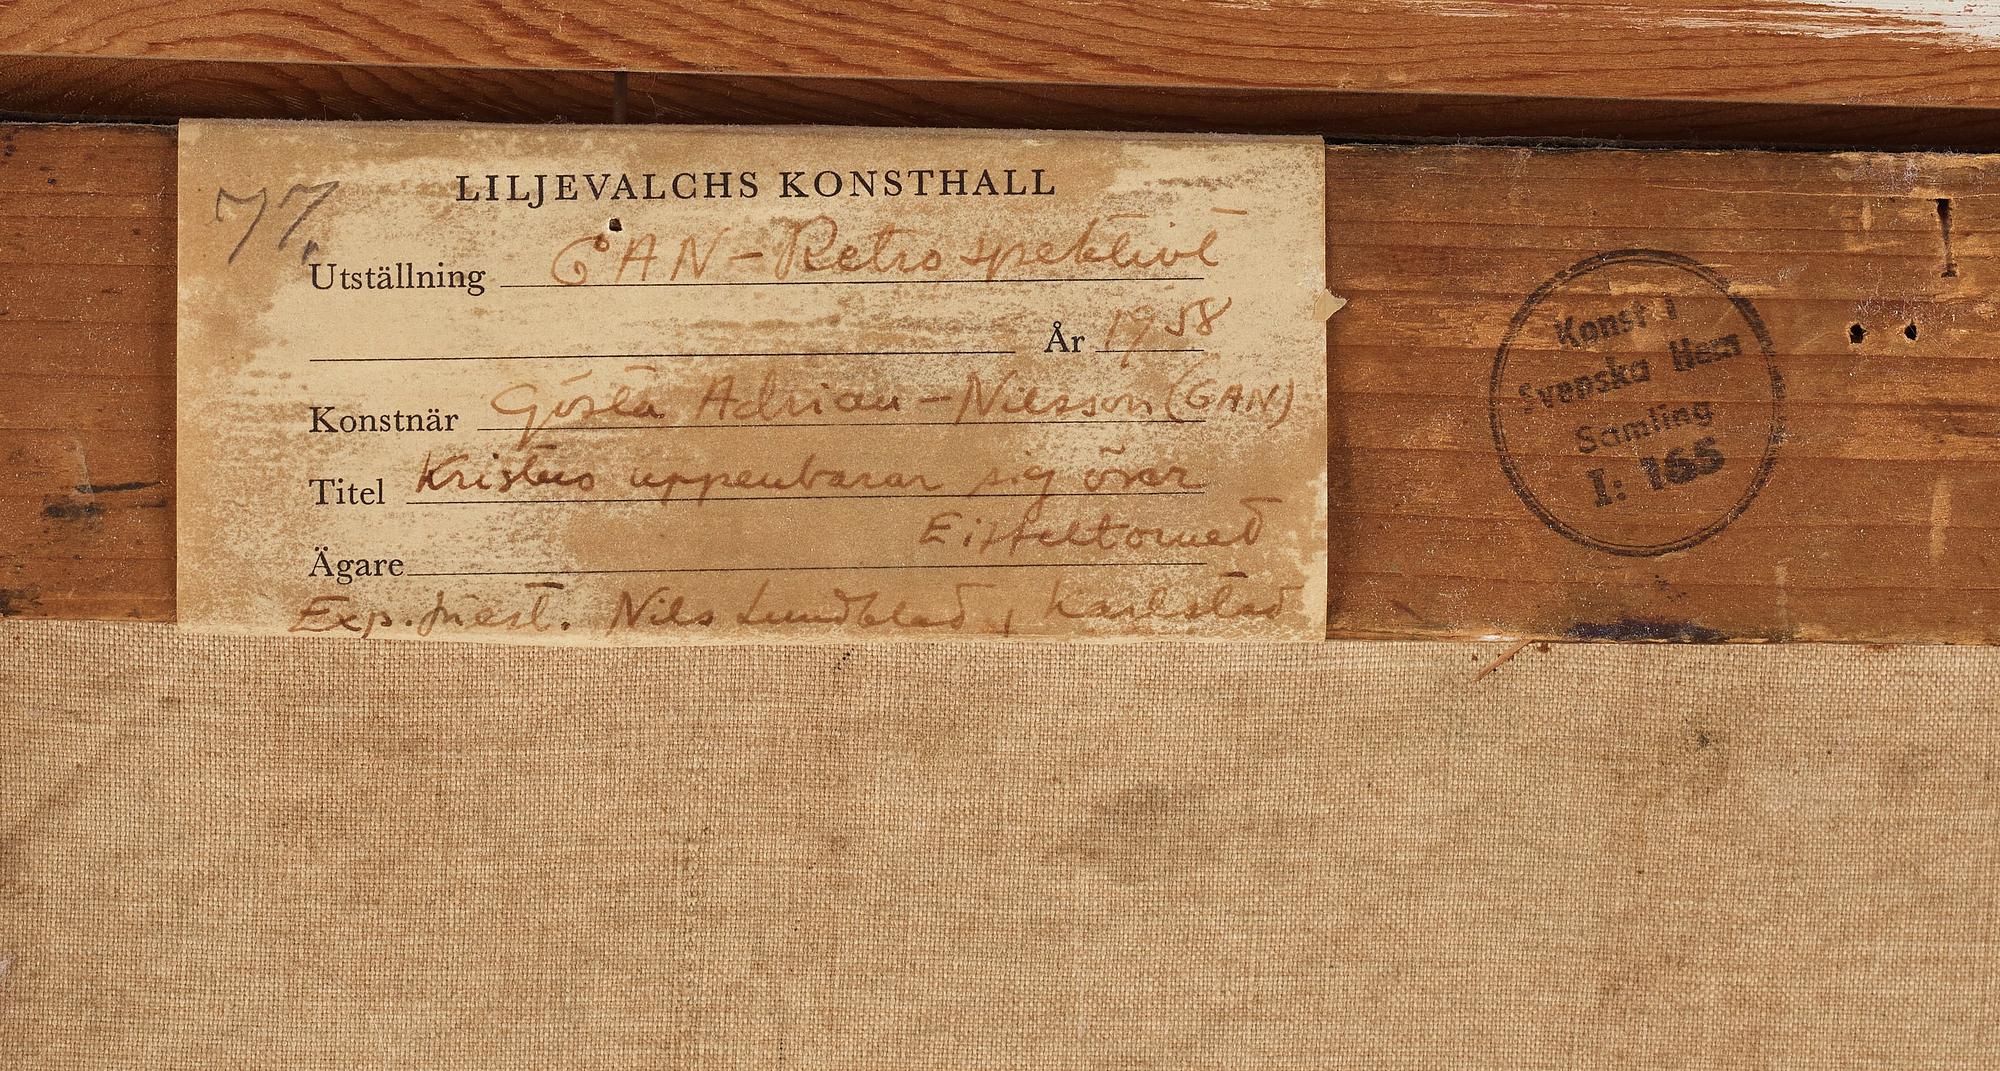 LILJEVALCHS KONSTHALL
77.
Utställning GAN - Retrospektivt
År 1958
Konstnär Gösta Adrian-Nilsson (GAN)
Titel Kristus uppenbarar sig över
Eiffeltornet
Ägare
Exp. Nils Lundblad, Karlstad
Konst i
Svenska Hem
Samling
I: 165